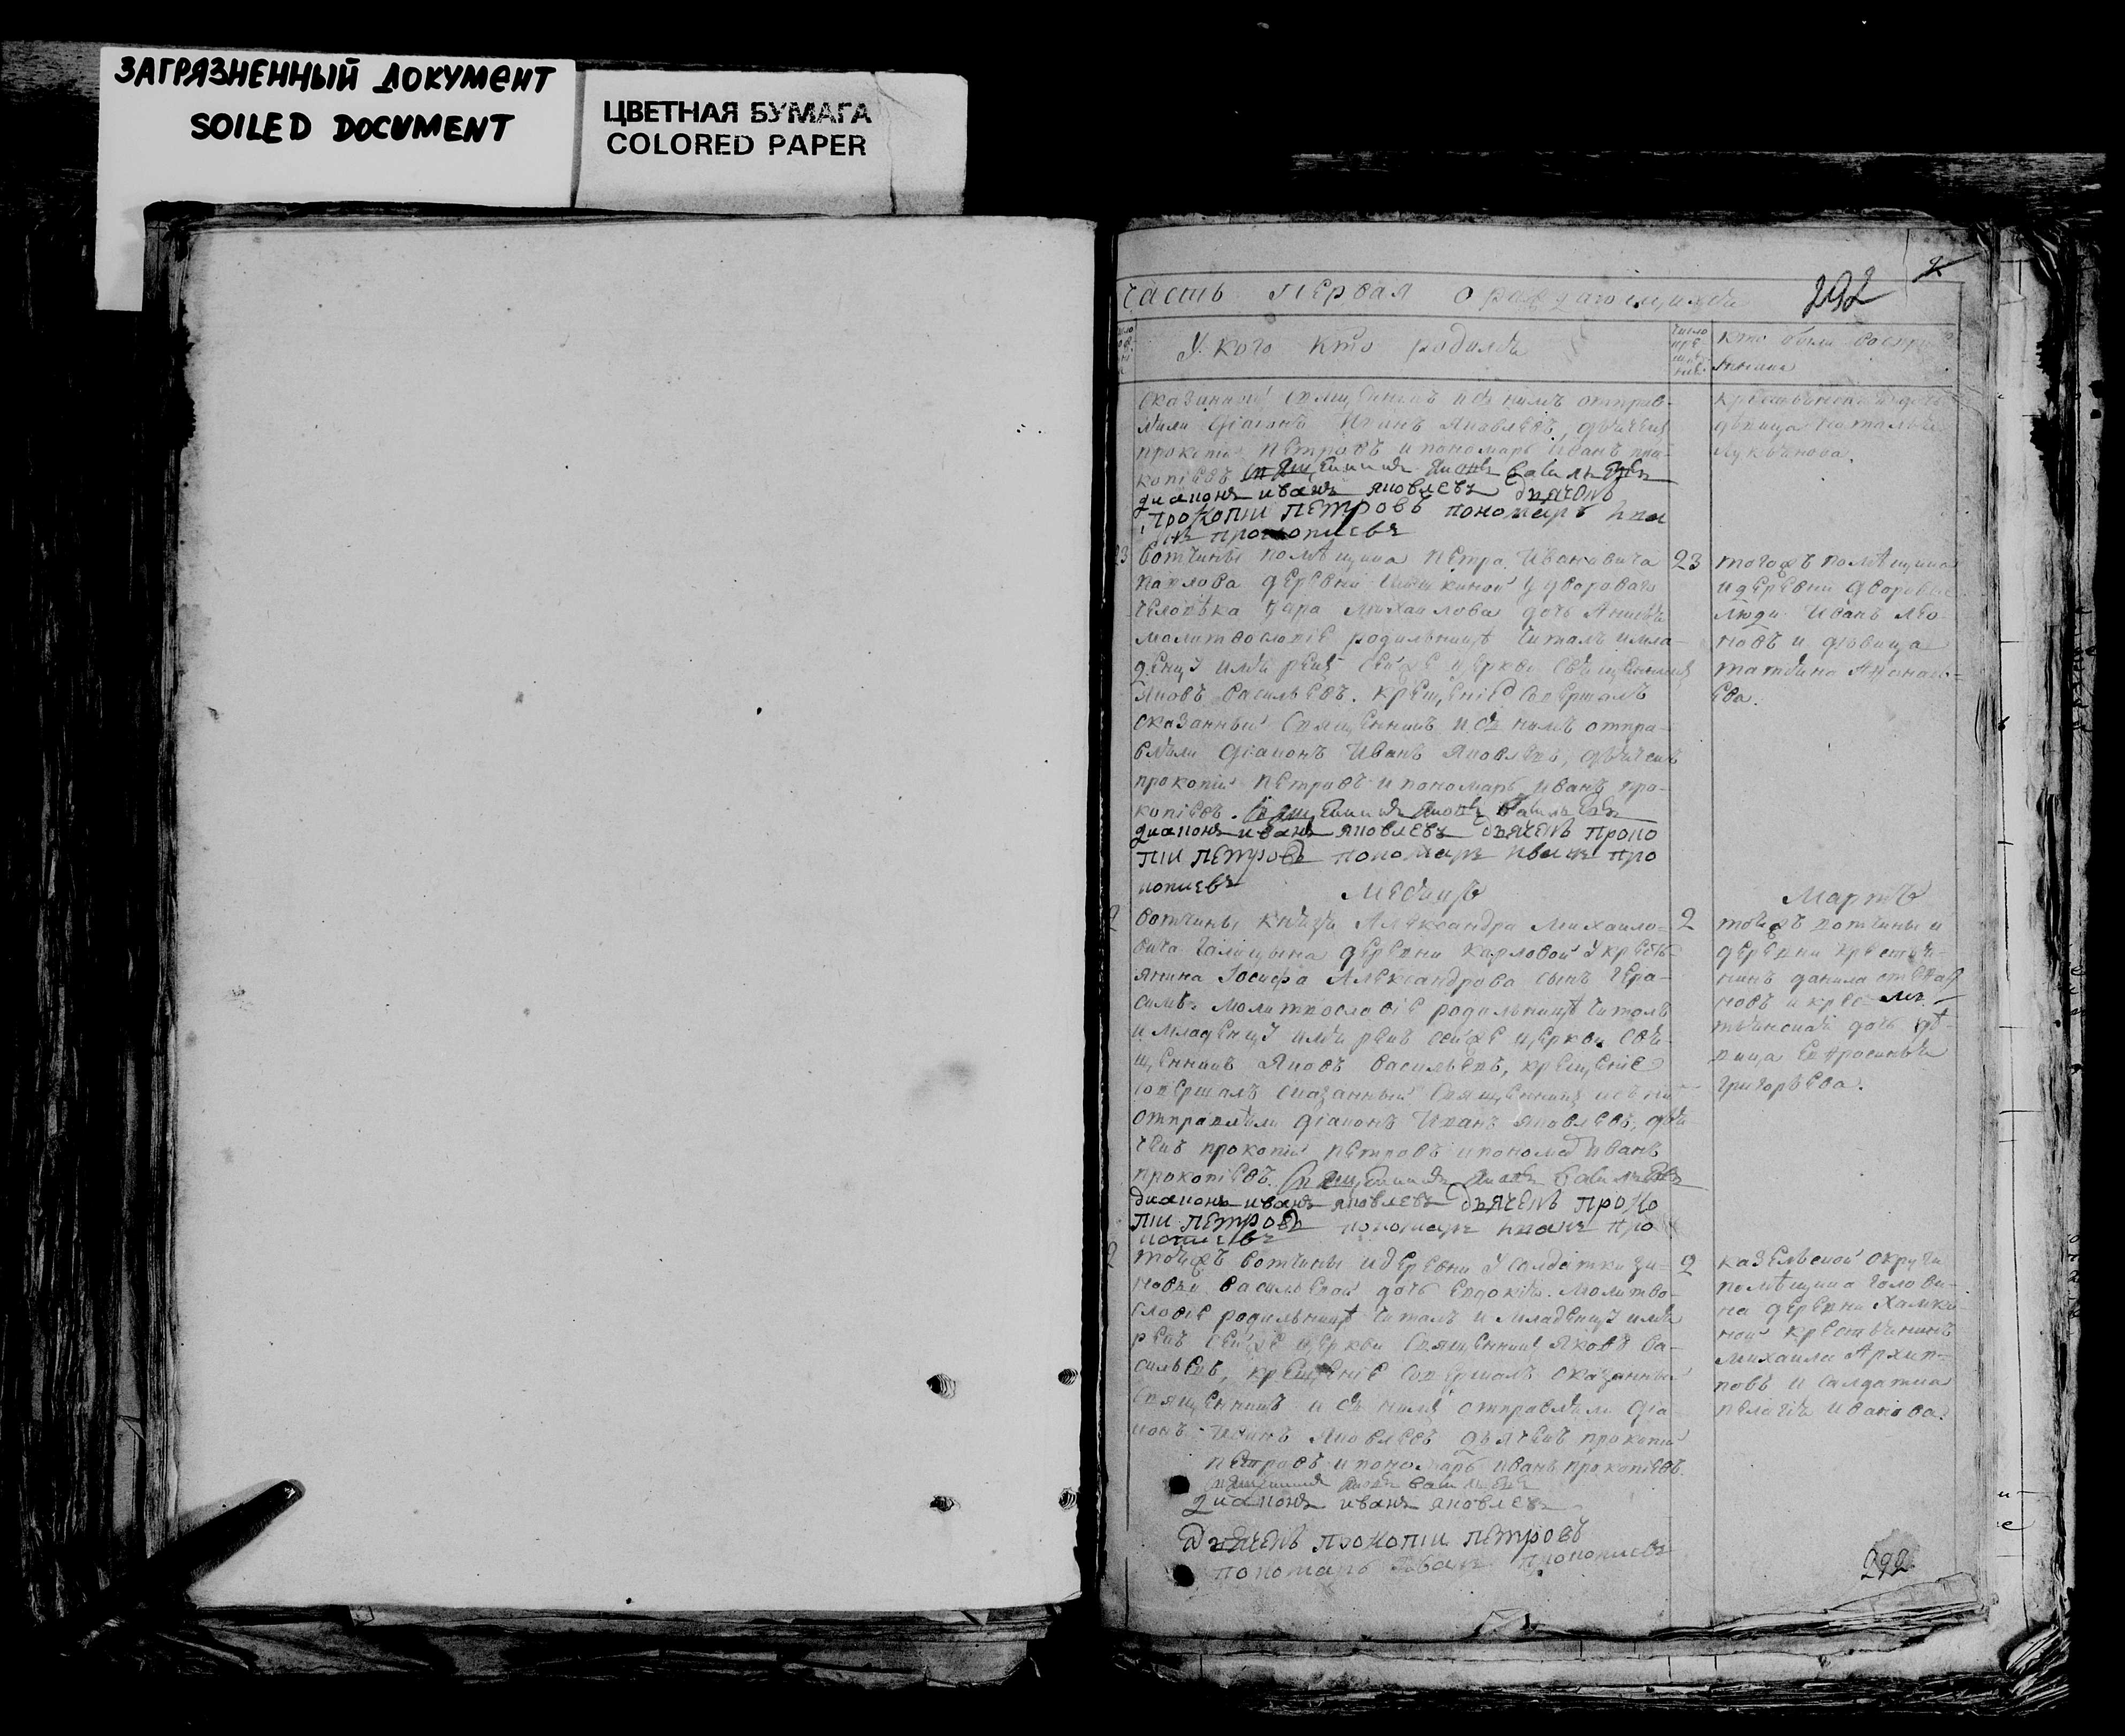 ЗАГРЯЗНЕННЫЙ ДОКУМЕНТ
SOILED DOCUMENT
ЦВЕТНАЯ БУМАГА
COLORED PAPER
2
292
Часть Первая О раждающихся
У кого кто родился
Кто были воспри-
емники
сказанный Священникъ и съ нимъ отправ-
ляли Діаконъ Иванъ Яковлевъ, дьячекъ
прокопій Петровъ и пономарь Иванъ про-
копіевъ Священникъ Яковъ Васильевъ
диаконъ иванъ яковлевъ дьячекъ
прокопии Петровъ пономаръ Ива
нъ прокопиевъ
крестьянская дочь
дѣвица Наталья
Лукьянова.
23
вотчины помѣщика Петра Ивановича
Павлова деревни у двороваго
человѣка Михайлова дочь
молитвословіе родильницѣ читалъ и мла-
денцу имя рекъ сейже церкви Священникъ
Яковъ Васильевъ. крещеніе совершалъ
сказанный Священникъ и съ нимъ отпра-
вляли Діаконъ Иванъ Яковлевъ, дьячекъ
прокопій Петровъ и пономарь Иванъ про-
копіевъ. Священникъ Яковъ Васильевъ
диаконъ иванъ яковлевъ дьячекъ проко
пии Петровъ пономаръ Иванъ про
копиевъ
23
тогожъ помѣщика
и деревни дворовые
люди Иванъ Лео-
новъ и дѣвица
татьяна Афонась-
ева.
Месяцъ
Мартъ
2
вотчины Князя Александра Михайло-
вича Галицына деревни Карловой у кресть-
янина Іосифа Александрова сынъ Гера-
симъ. Молитвословіе родильницѣ читалъ
и младенцу имя рекъ сейже церкви Свя-
щенникъ Яковъ Васильевъ, крещеніе
совершалъ сказанный Священникъ и съ ним
отправляли діаконъ Иванъ Яковлевъ, дья
чекъ прокопій Петровъ и понома Иванъ
прокопіевъ. Священникъ Яковъ Васильевъ
диаконъ иванъ яковлевъ дьячекъ проко
пии Петровъ пономаръ Иванъ про
копиевъ
2
тояжъ вотчины и
деревни крестья-
нинъ данила степа
новъ и крес
тьянская дочь дѣ-
вица Ефросинья
григорьева.
тояжъ вотчины и деревни у салдатки Зи-
новьи Васильевой дочь Евдокія. Молитво-
словіе родильницѣ читалъ и младенцу имя
рекъ сейже церкви Священникъ Яковъ Ва-
сильевъ, крещеніе совершалъ сказанный
Священникъ и съ нимъ отправляли Діа-
конъ Иванъ Яковлевъ дьячекъ прокопій
Петровъ и пономарь Иванъ прокопіевъ.
Священникъ Яковъ Васильевъ
диаконъ иванъ яковлевъ
дьячекъ прокопии петровъ
пономаръ Иван прокопиевъ
2
казельской округи
помѣщика Голови-
на деревни
ной крестьянинъ
Михаила Архип-
повъ и салдатка
пелагія Иванова.
292